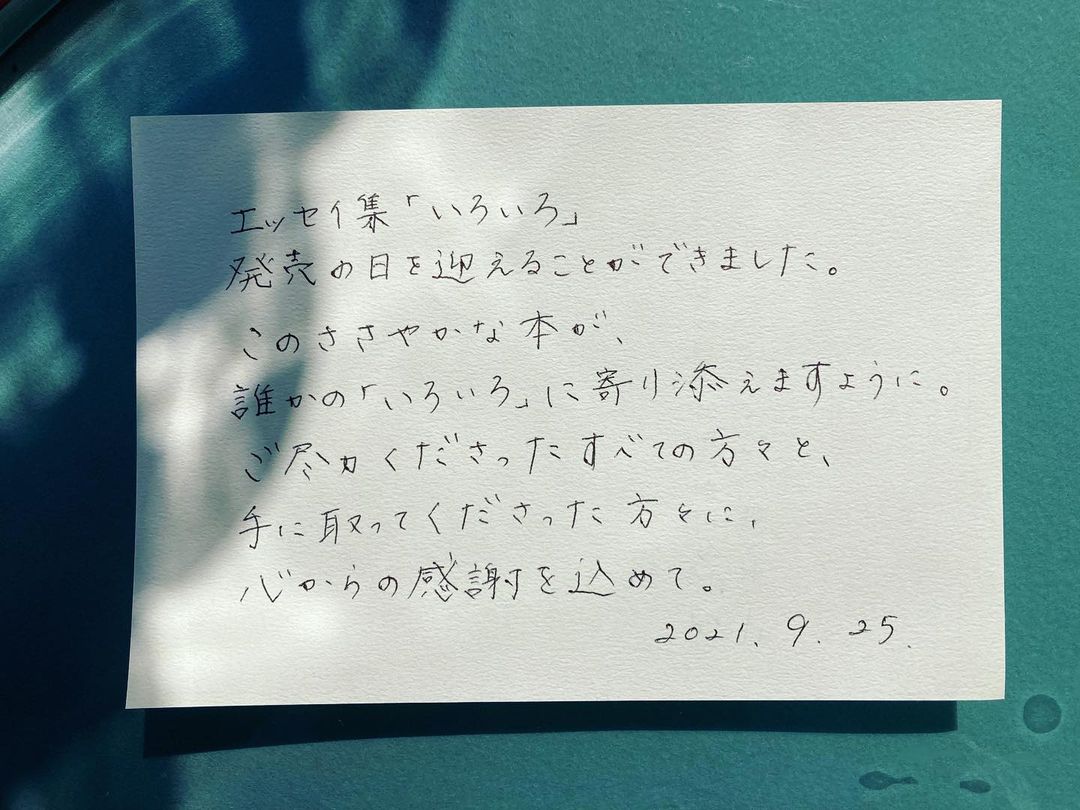 エッセイ集「いろいろ」
発売の日を迎えることができました。
このささやかな本が、
誰かの「いろいろ」に寄り添えますように。
ご尽力くださったすべての方々と、
手に取ってくださった方々に、
心からの感謝を込めて。
2021. 9. 25.